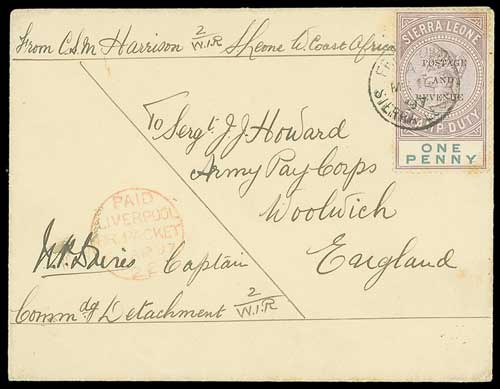 From C.S.M Harrison 2/W.I.R SLeone W. Coast Africa
SIERRA LEONE
POSTAGE
AND
REVENUE
STAMP DUTY
ONE
PENNY
SIERRA
To Sergt. J.J. Howard
Army Pay Corps
Woolwich
England
PAID
LIVERPOOL
BR. PACKET
97
Captain
Commdg Detachment 2/W.I.R